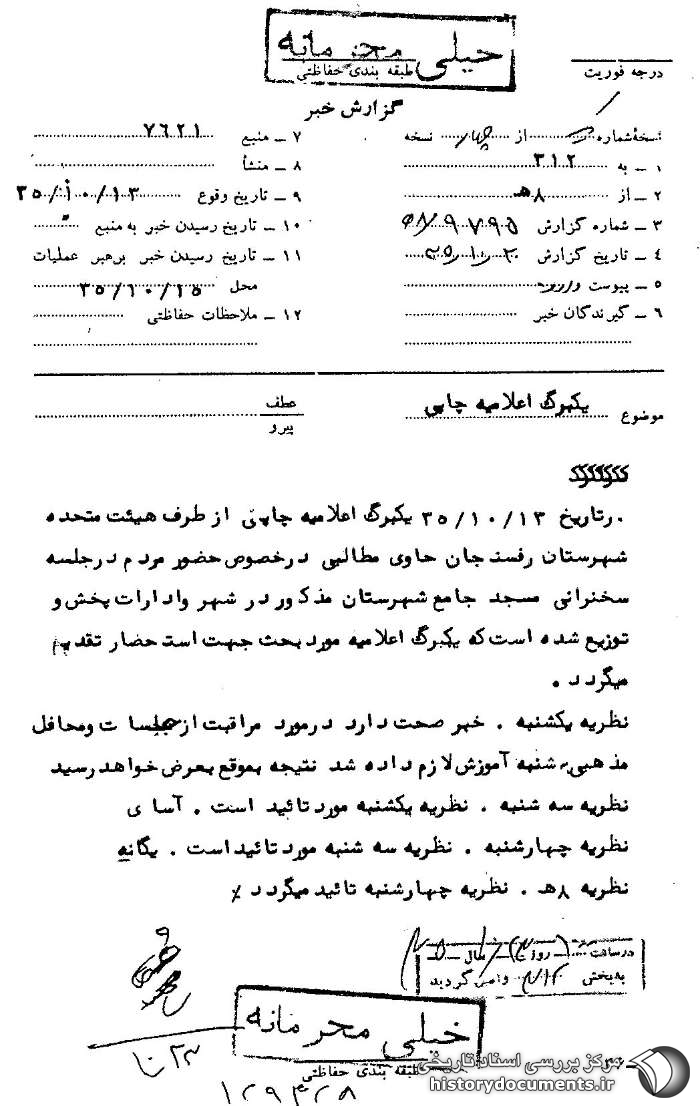 خیلی محرمانه
طبقه بندی حفاظتی
درجه فوریت
گزارش خبر
نسخه شماره از چهار نسخه
۱ ـ به ۳۱۲
۲ ـ از ۸هـ
۳ ـ شماره گزارش
۴ ـ تاریخ گزارش
۵ ـ پیوست دارد
۶ ـ گیرندگان خبر
۷ ـ منبع ۷۶۲۱
۸ ـ منشأ
۹ ـ تاریخ وقوع ۳۵/۱۰/۱۳
۱۰ ـ تاریخ رسیدن خبر به منبع
۱۱ ـ تاریخ رسیدن خبر برهبر عملیات
محل ۳۵/۱۰/۱۵
۱۲ ـ ملاحظات حفاظتی
موضوع یکبرگ اعلامیه چاپی
عطف
پیرو
درتاریخ ۳۵/۱۰/۱۳ یکبرگ اعلامیه چاپی از طرف هیئت متحده
شهرستان رفسنجان حاوی مطالبی درخصوص حضور مردم درجلسه
سخنرانی مسجد جامع شهرستان مذکور در شهر وادارات پخش و
توزیع شده است که یکبرگ اعلامیه مورد بحث جهت استحضار تقدیم
میگردد .
نظریه یکشنبه . خبر صحت دارد درمورد مراقبت از جلسات ومحافل
مذهبی به شنبه آموزش لازم داده شد نتیجه بموقع بعرض خواهد رسید
نظریه سه شنبه . نظریه یکشنبه مورد تائید است . آسای
نظریه چهارشنبه . نظریه سه شنبه مورد تائید است . یگانه
نظریه ۸هـ . نظریه چهارشنبه تائید میگردد
در ساعت روز سال
به بخش ۳۱۲ واصل گردید
خیلی محرمانه
طبقه بندی حفاظتی
۱۲۹۴۲۸
مرکز بررسی اسناد تاریخی
historydocuments.ir